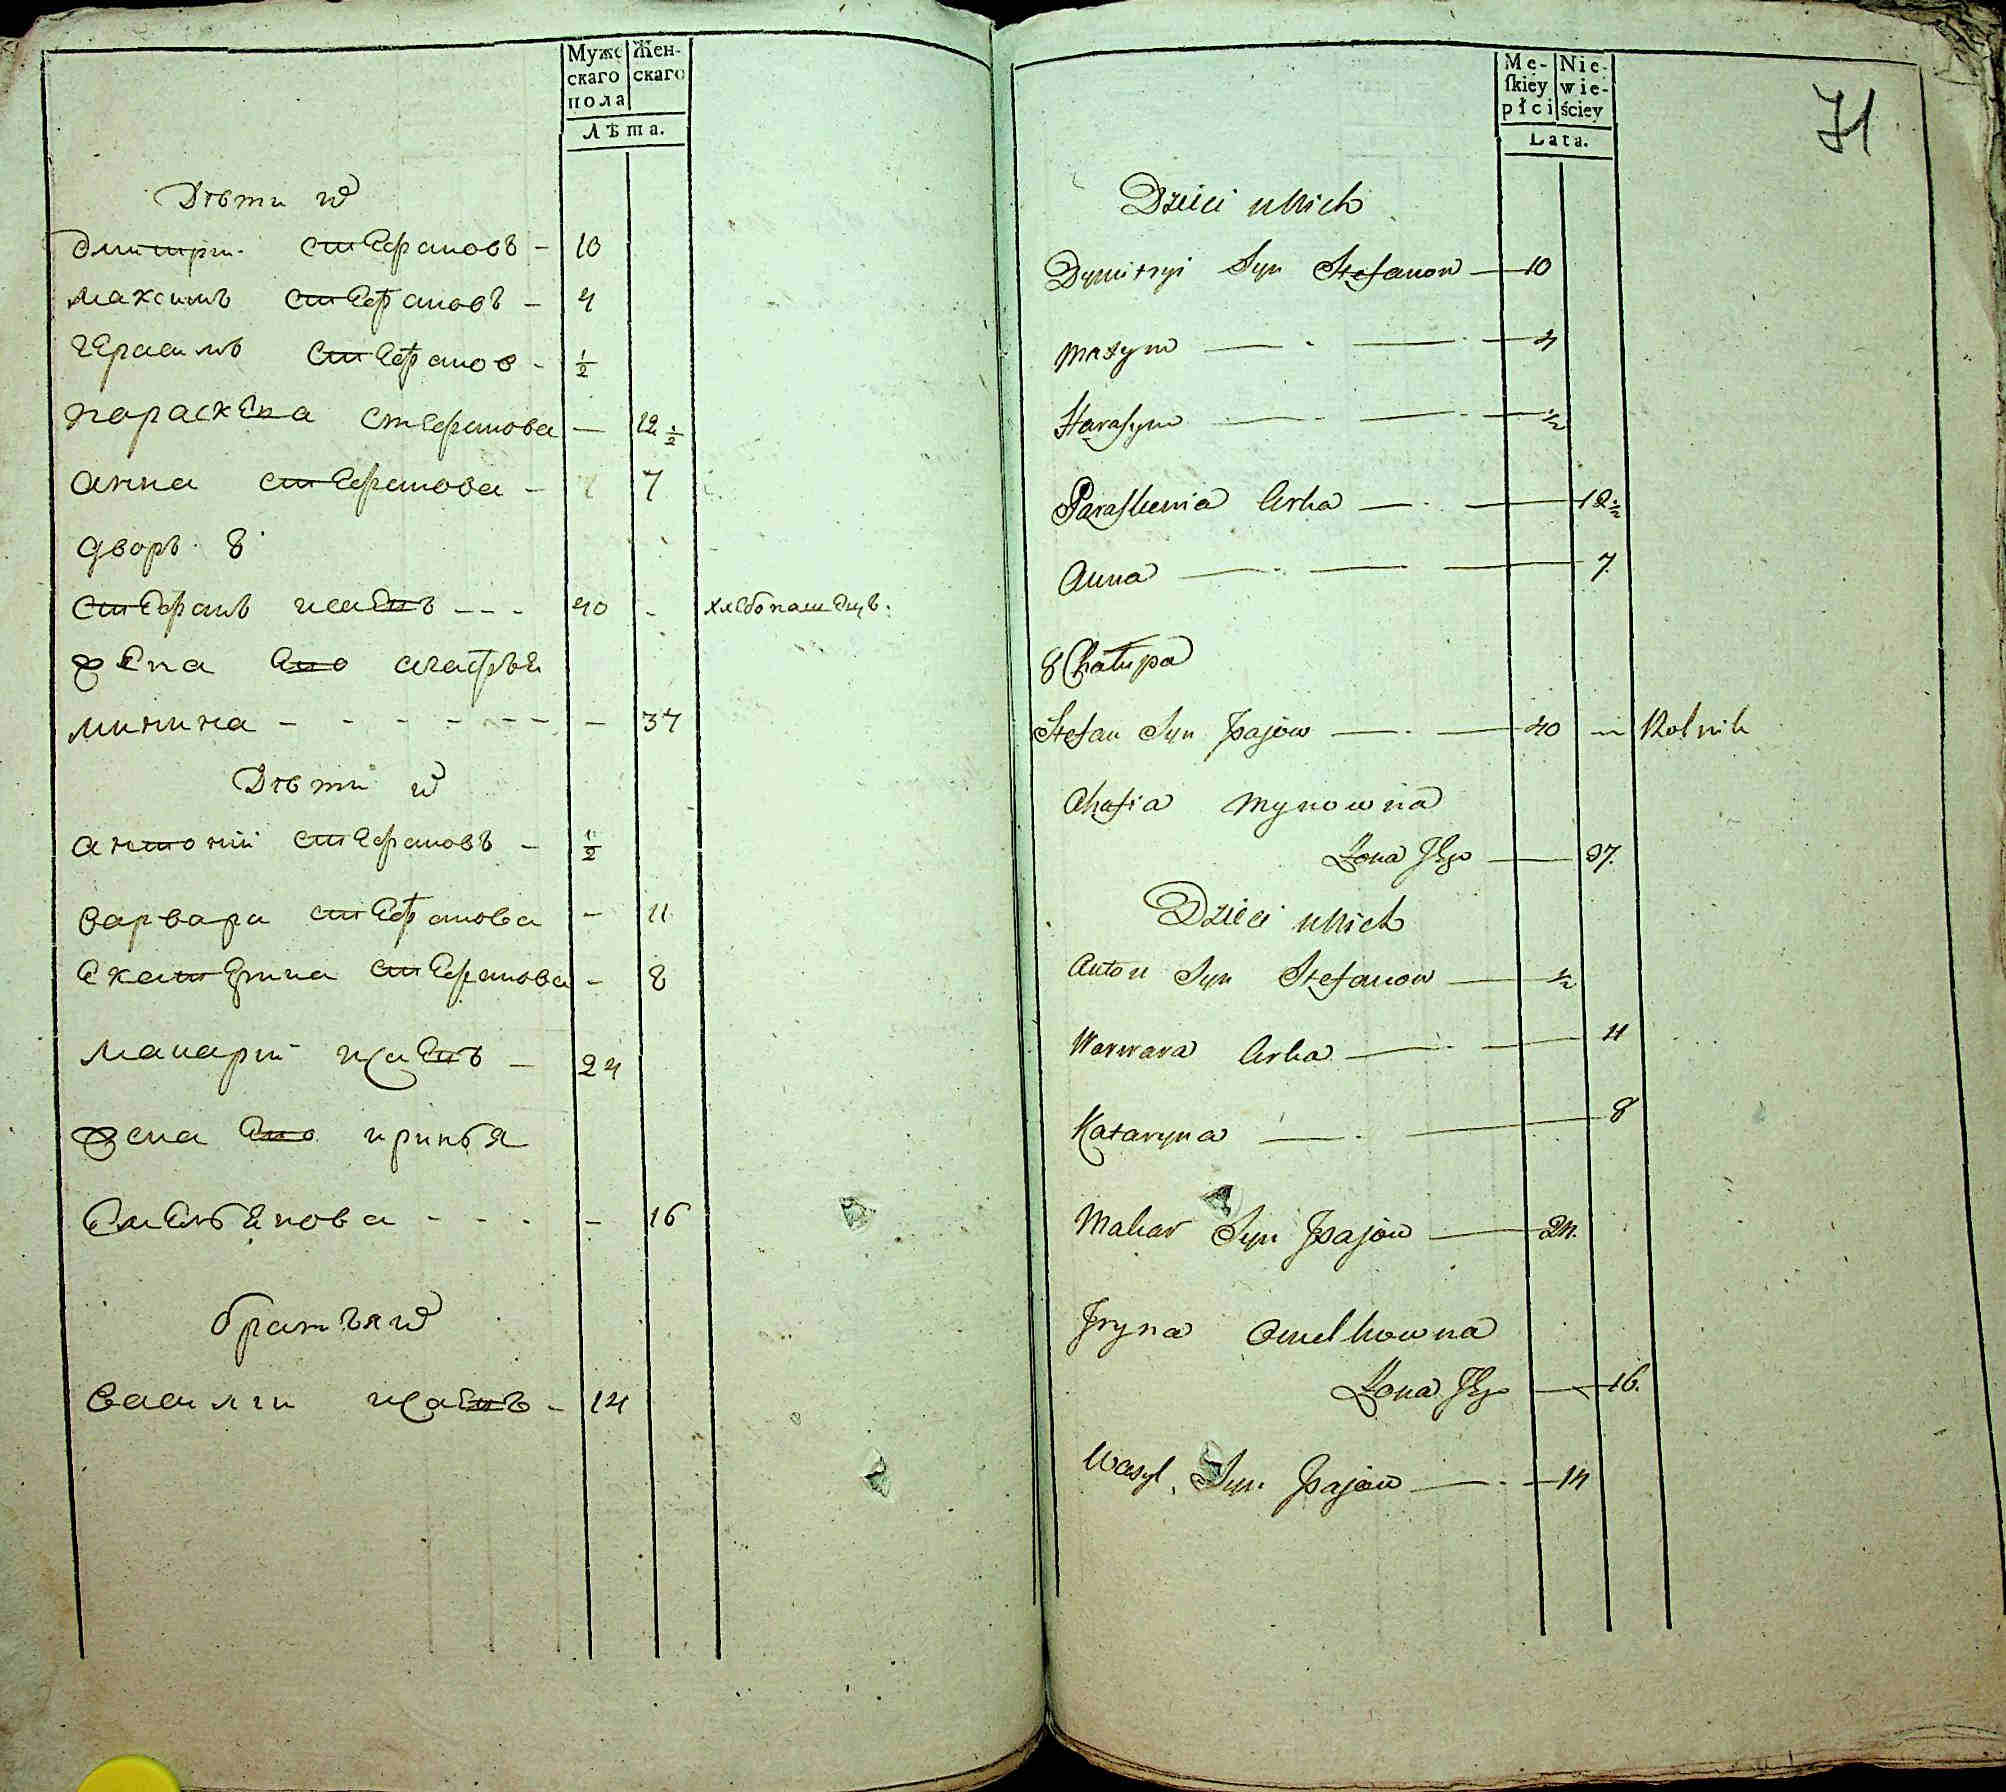 Мужс Жен-
скаго скаго
пола
Лѣта.
Дѣти их
Дмитрий Стефановъ - 10
Максимъ Стефановъ - 4
Герасимъ Стефанов - 1/2
Параскева Стефанова - 12 1/2
Анна Стефанова - 7
Дворъ 8
Стефанъ Исаевъ - - - 40 - хлебопашецъ.
Жена его Агафья
Минина - - - - - - - 37
Дѣти их
Антоний Стефановъ - 1/2
Варвара Стефанова - 11
Екатерина Стефанова - 8
Макарий Исаевъ - 24
Жена его Иринья
Емельянова - - - - 16
братья их
Василий Исаевъ - 14
Mę- Nie-
ſkiey wie-
płci ściey
Lata.
71
Dzieci u Nich
Dymitryi Syn Stefanow — 10
Maxym — . — . — 4
Harasym — . — . — 1/2
Paraskewia Curka — . — 12 1/2
Anna — . — — 7.
8 Chałupa
Stefan Syn Jsajow — . — 40 — Rolnik
Ahafia Mynowna
Żona Jego — 37.
Dzieci u Nich
Anton Syn Stefanow — 1/2
Warwara Curka — . — 11
Kataryna — . — 8
Makar Syn Jsajow — 24.
Jryna Omelkowna
Żona Jego — 16.
Wasyl Syn Jsajow — . — 14